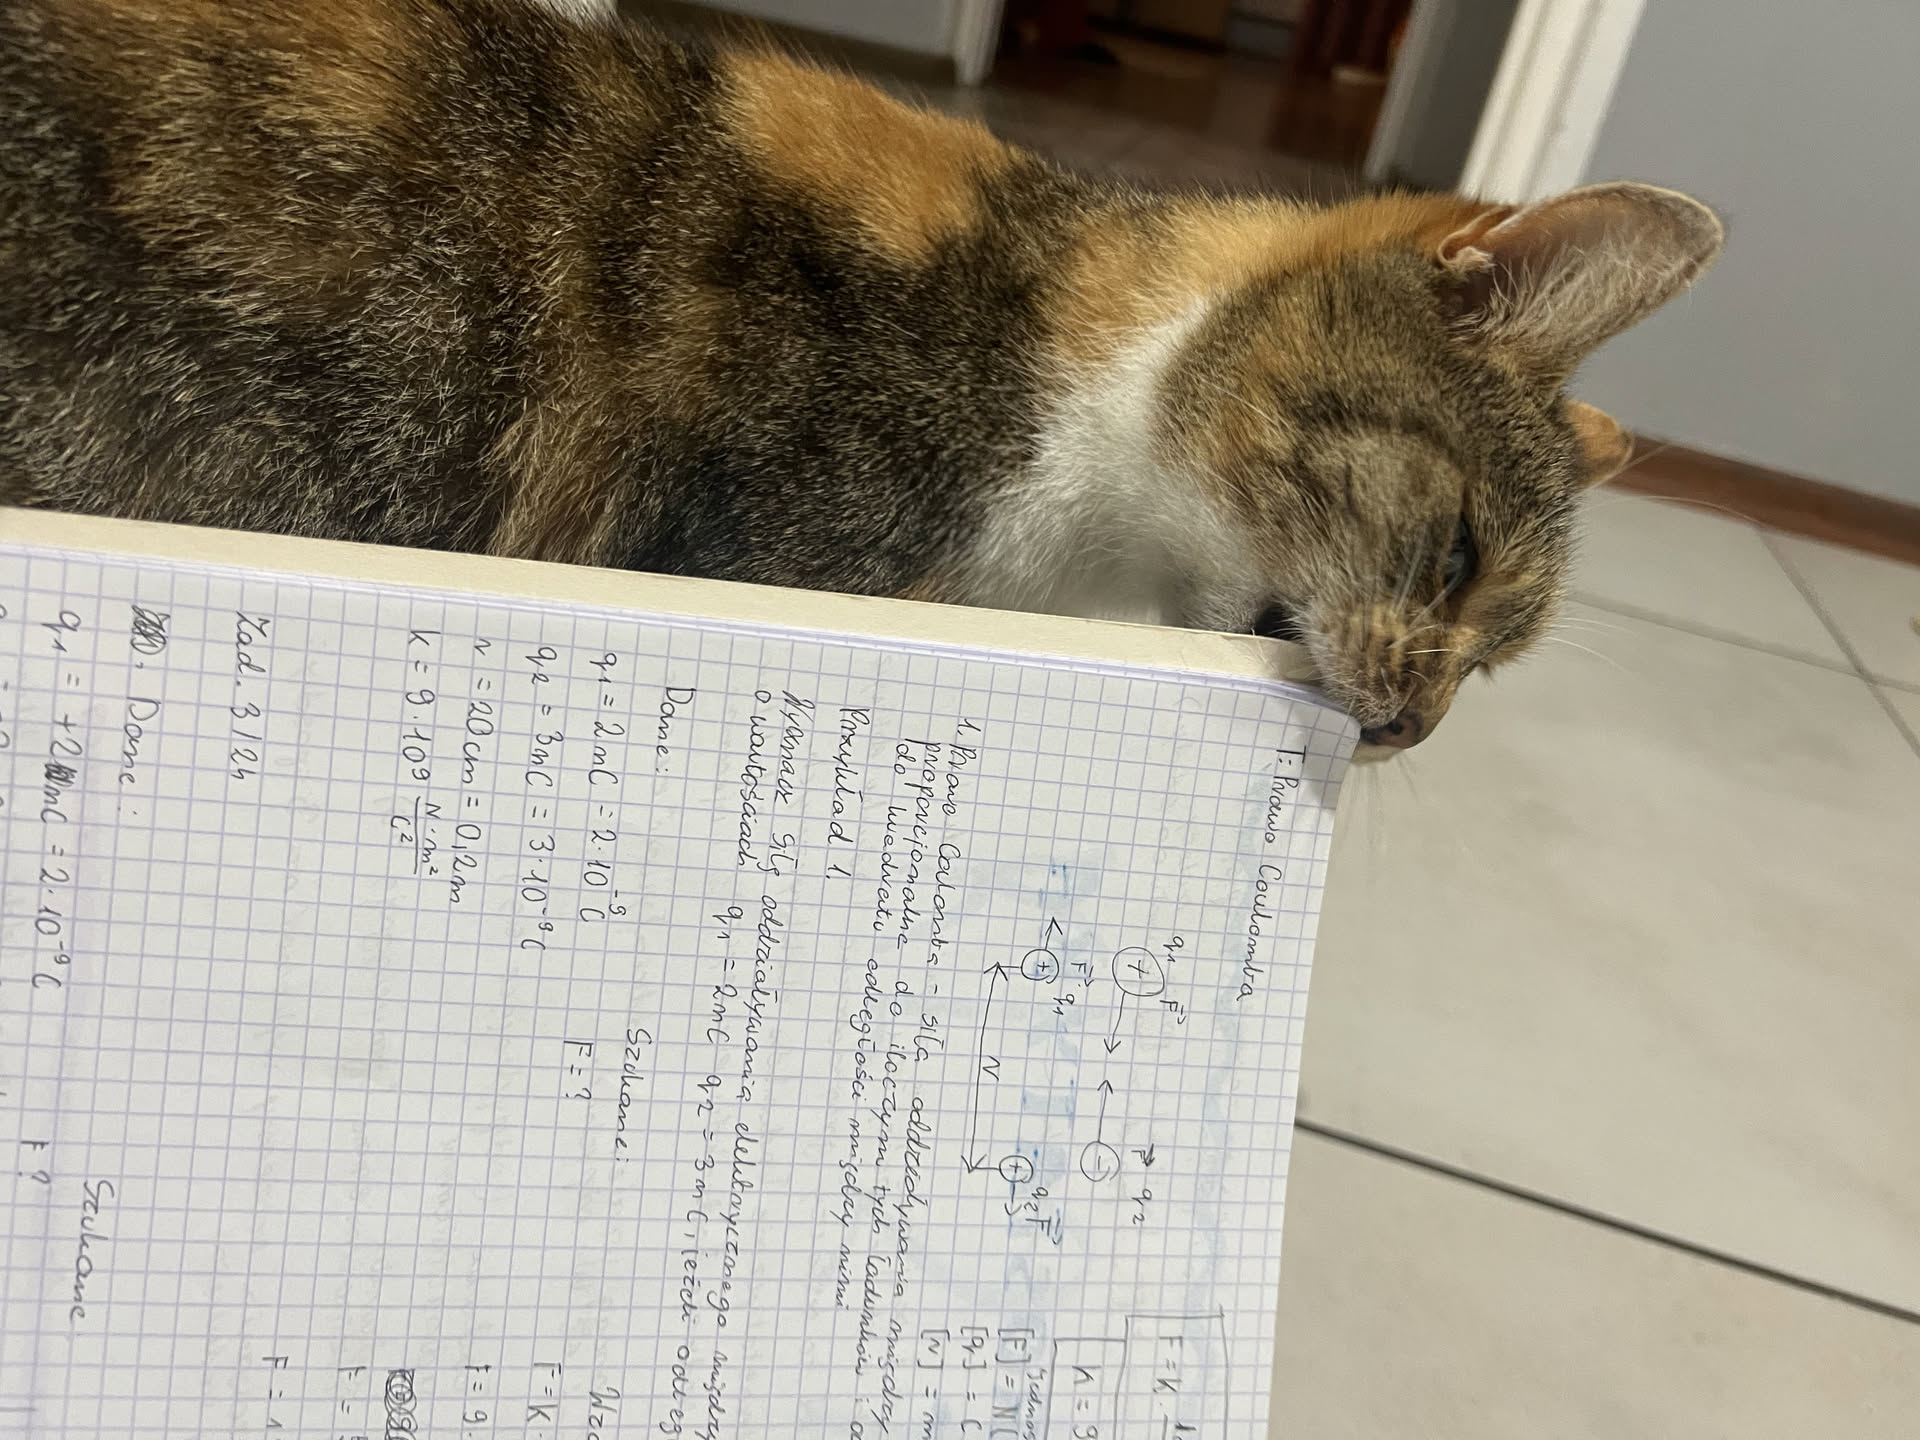 T: Prawo Coulomba
q1 F→ F→ q2
+ -
F = k ·
F→ q1 q2 F→
+ +
k = 9
r
Jednos
[F] = N
[q] = C
[r] = m
1. Prawo Coulomba - siła oddziaływania między
proporcjonalne do iloczynu tych ładunków i o
do kwadratu odległości między nimi
Przykład 1.
Wyznacz siłę oddziaływania elektrycznego między
o wartościach q1 = 2nC q2 = 3nC, jeżeli odleg
Dane:
Szukane:
q1 = 2nC = 2·10⁻⁹ C
F = ?
q2 = 3nC = 3·10⁻⁹ C
F = k·
r = 20cm = 0,2m
F = 9·
k = 9·10⁹ N·m²/C²
F =
F = 1
Zad. 3/24
Dane:
Szukane
q1 = +2nC = 2·10⁻⁹ C
F ?